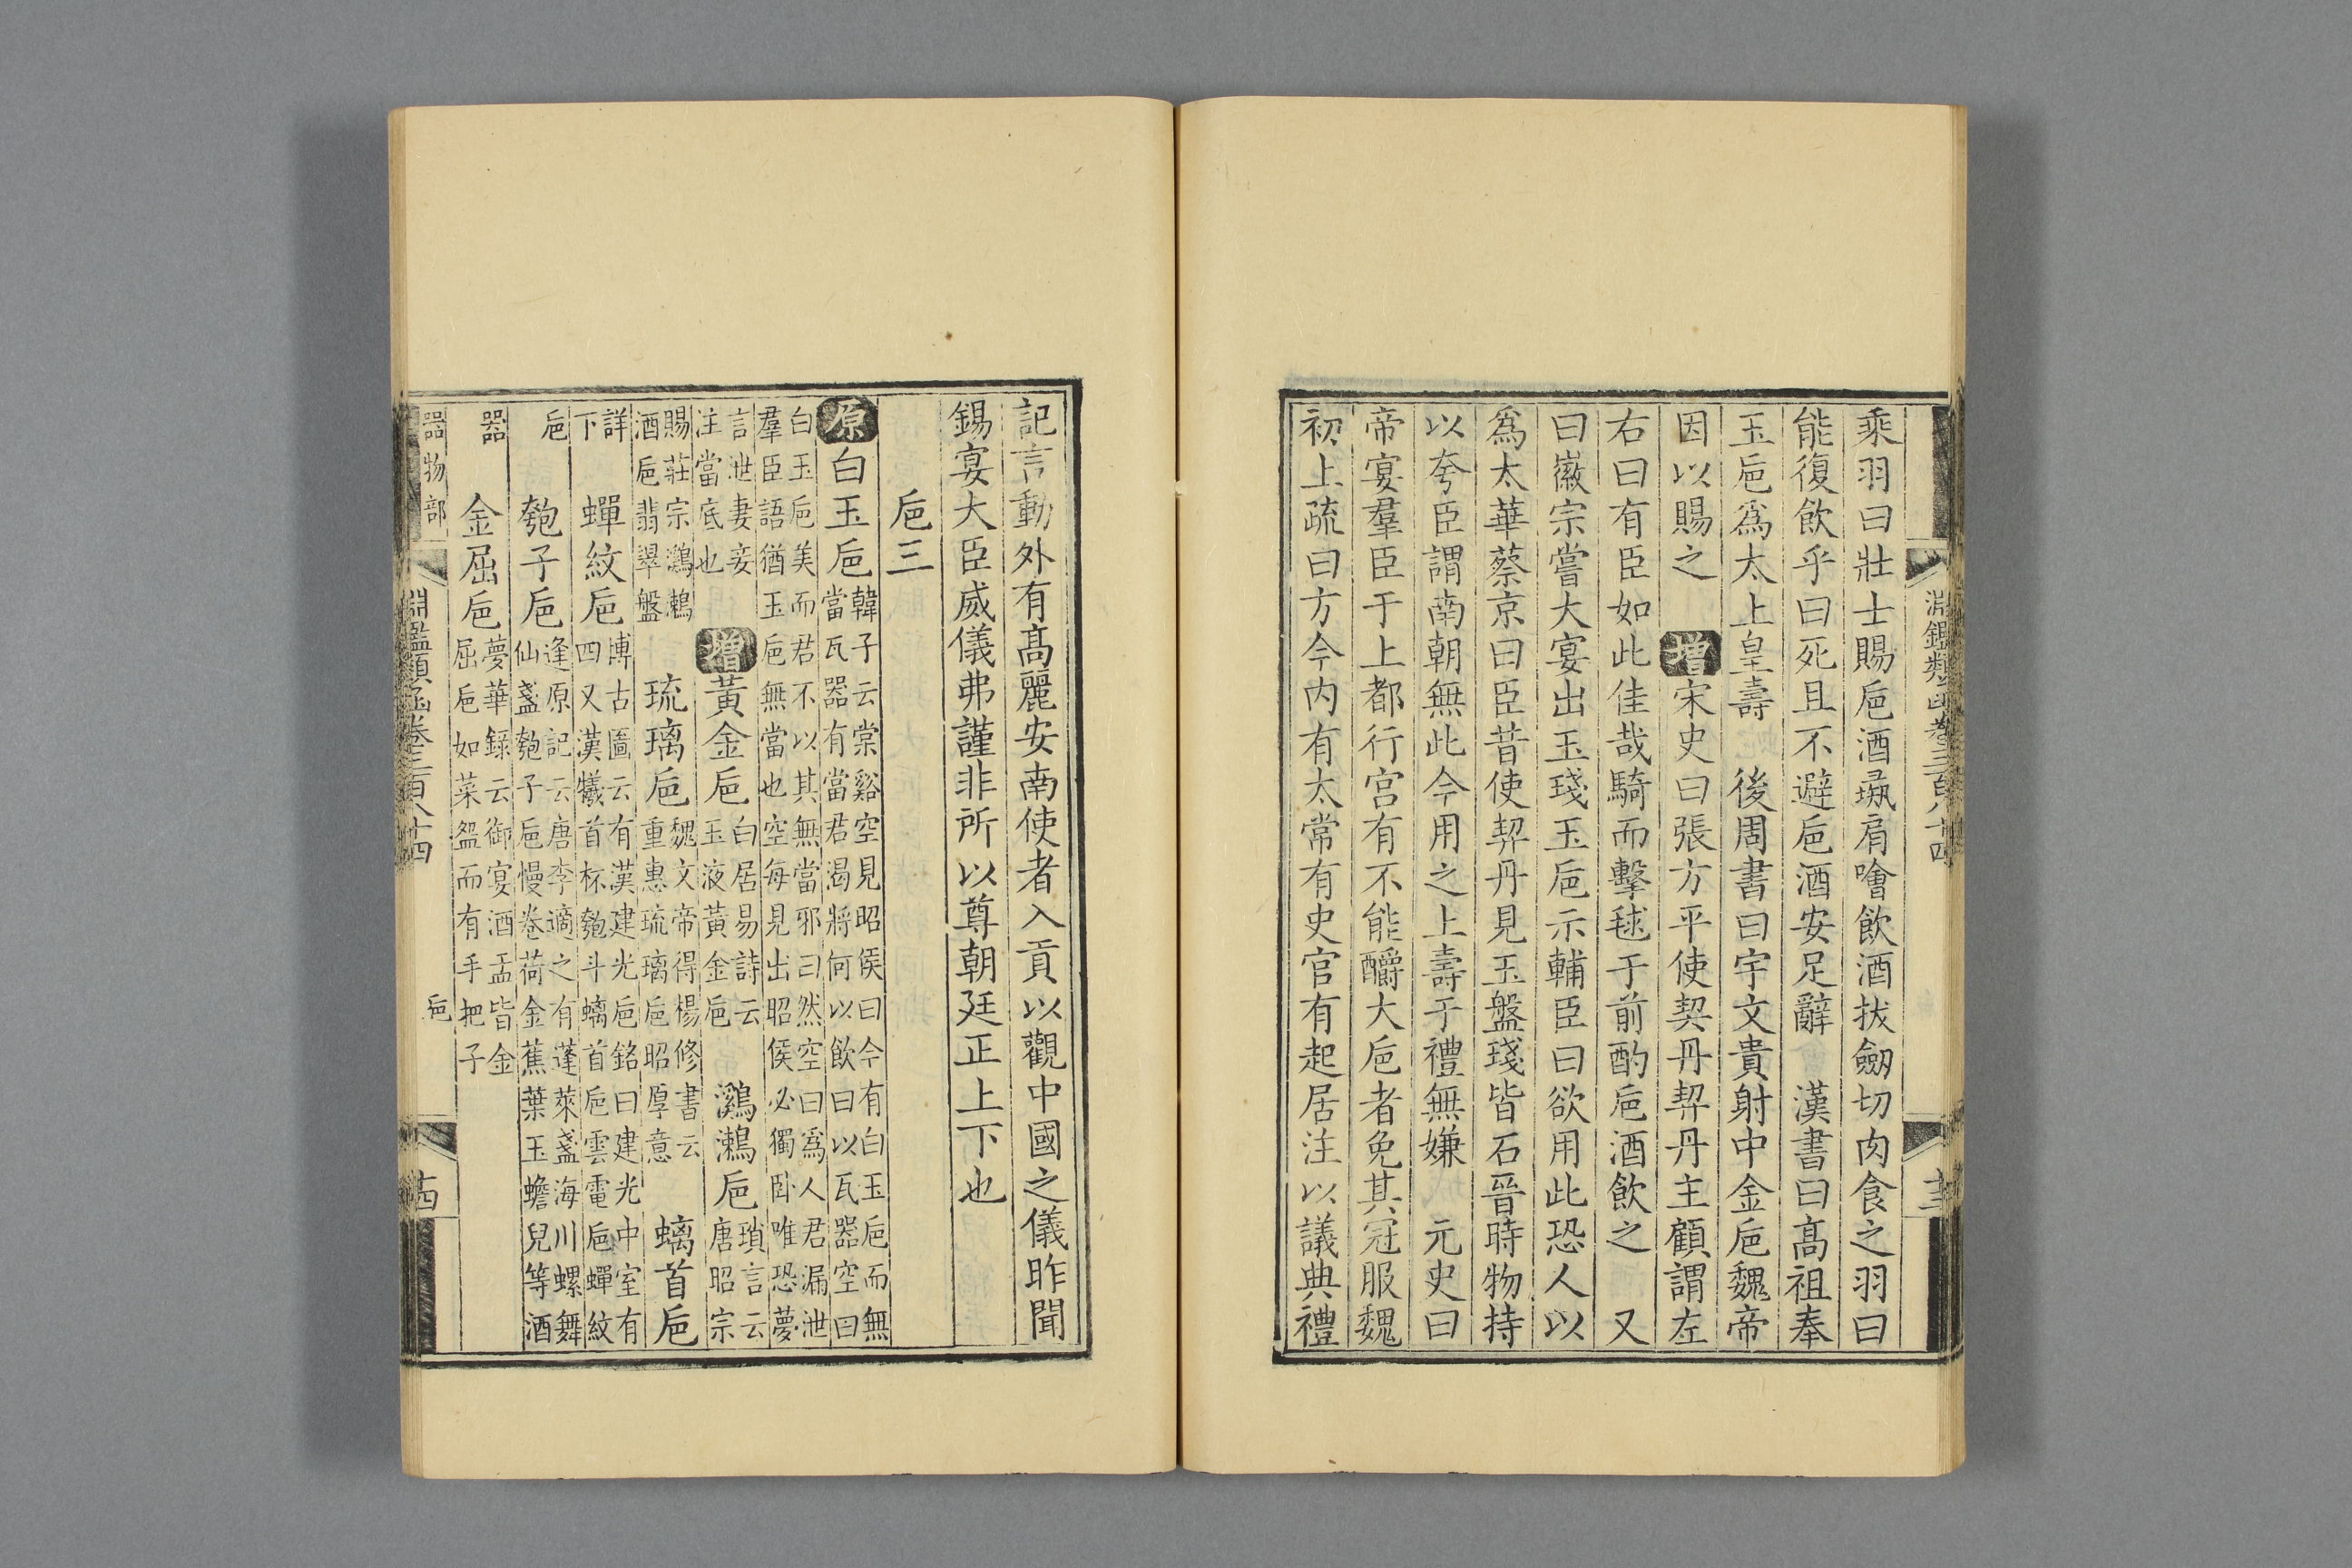 淵鑑類函卷三百八十四
十三
乘羽曰壯士賜巵酒彘肩噲飲酒拔劒切肉食之羽曰
能復飲乎曰死且不避巵酒安足辭　漢書曰高祖奉
玉巵爲太上皇壽　後周書曰宇文貴射中金巵魏帝
因以賜之　增宋史曰張方平使契丹契丹主顧謂左
右曰有臣如此佳哉騎而擊毬于前酌巵酒飲之　又
曰徽宗嘗大宴出玉琖玉巵示輔臣曰欲用此恐人以
爲太華蔡京曰臣昔使契丹見玉盤琖皆石晉時物持
以夸臣謂南朝無此今用之上壽于禮無嫌　元史曰
帝宴羣臣于上都行宮有不能釂大巵者免其冠服魏
初上疏曰方今內有太常有史官有起居注以議典禮
記言動外有高麗安南使者入貢以觀中國之儀昨聞
錫宴大臣威儀弗謹非所以尊朝廷正上下也
巵三
原白玉巵韓子云棠谿空見昭侯曰今有白玉巵而無
當瓦器有當君渴將何以飲曰以瓦器空曰
白玉巵美而君不以其無當邪曰然空曰爲人君漏泄
羣臣語猶玉巵無當也空每見出昭侯必獨臥唯恐夢
言泄妻妾
注當底也　增黃金巵白居易詩云
玉液黃金巵　鸂鶒巵瑣言云
唐昭宗
賜莊宗鸂鶒
酒巵翡翠盤　琉璃巵魏文帝得楊修書云
重惠琉璃巵昭厚意　螭首巵
詳
下　蟬紋巵博古圖云有漢建光巵銘曰建光中室有
四又漢犧首杯匏斗螭首巵雲電巵蟬紋
巵　匏子巵逢原記云唐李適之有蓬萊盞海川螺舞
仙盞匏子巵慢卷荷金蕉葉玉蟾兒等酒
器　金屈巵夢華錄云御宴酒盂皆金
屈巵如菜盌而有手把子
器物部
淵鑑類函卷三百八十四
巵
十四